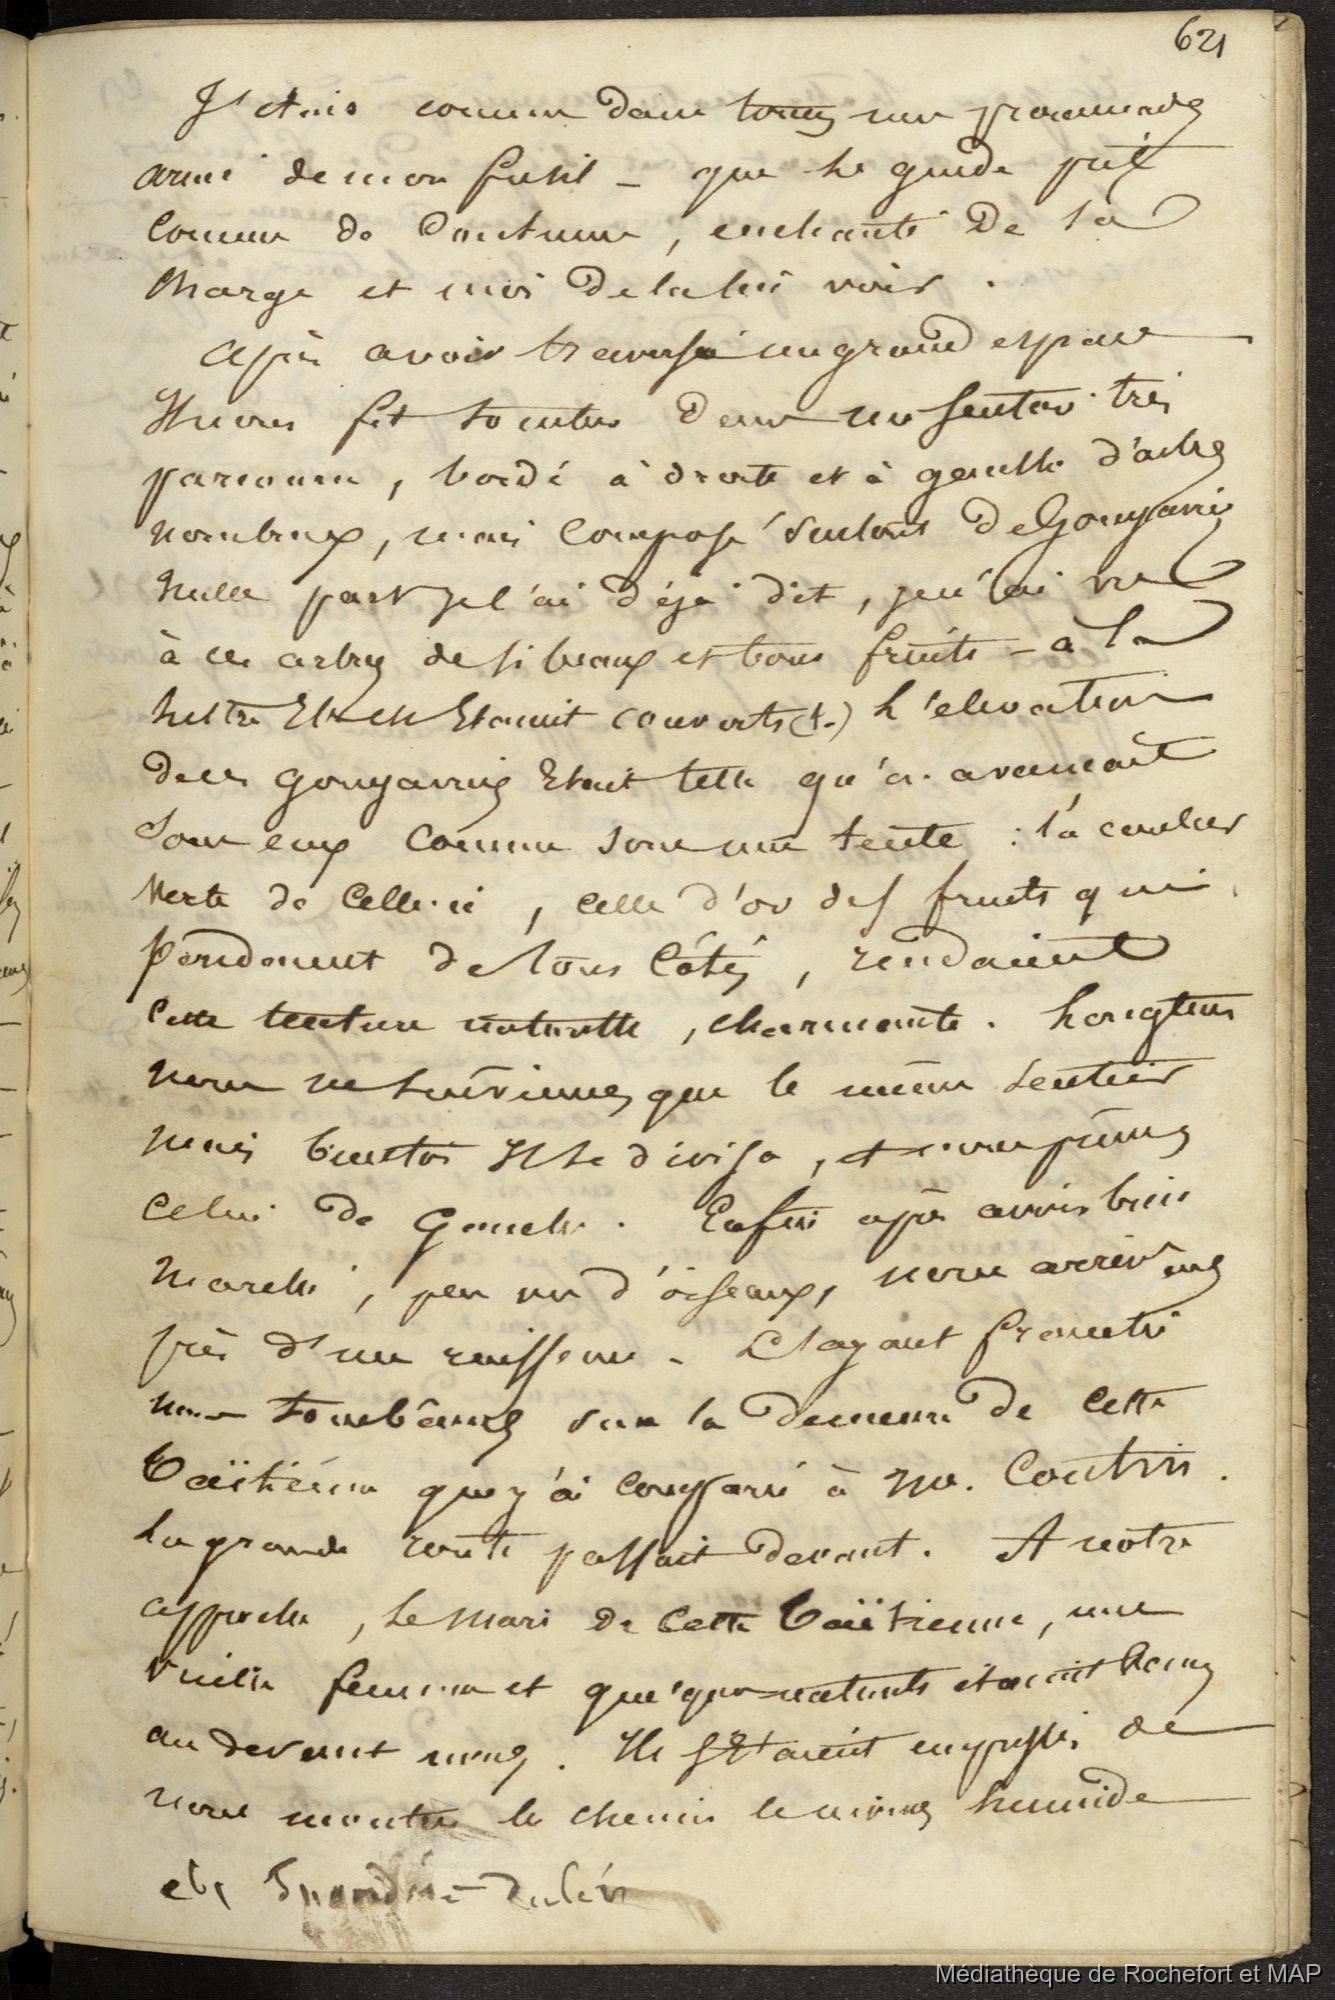 621
J'étais comme dans toutes mes promenades
armé de mon fusil – que le guide prit
comme de Coutume, enchanté De sa
Charge et moi De la lui voir.
Après avoir traversé un grand espace
Il nous fit tomber Dans un sentier très
parcouru, bordé à droite et à gauche d'arbres
nombreux, mais Composé surtout De Gouyaviers
Nulle part je l'ai déjà dit, je n'ai vu
à ces arbres de si beaux et bons fruits – à la
lettre Ils en Etaient couverts L'élévation
De ces gouyaviers Etait telle qu'on avançait
Sous eux Comme sous une tente : la couleur
Verte de Celle-ci, celle d'or des fruits qui
Pendaient de tous Côtés, rendaient
Cette tenture naturelle, charmante. Longtems
nous ne suivimes que le même sentier
mais bientôt Il se divisa, et nous prîmes
Celui De Gauche. Enfin après avoir bien
Marché, peu vu d'oiseaux, nous arrivâmes
près d'un ruisseau. L'ayant franchi
nous tombâmes sur la Demeure De Cette
Taïtienne que j'ai Comparé à M. Coutrin.
La grande route passait Devant. A notre
approche, le Mari De Cette Taïtienne, une
Vieille femme et quelques naturels étaient venus
au devant nous. Ils s'Etaient empressés de
nous montrer le chemin le moins humide